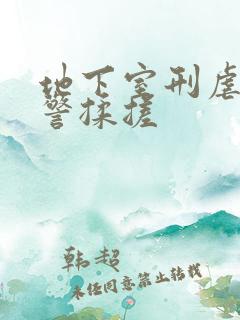 地下室刑虐
警揉搓
韩超
未任同意禁止转载